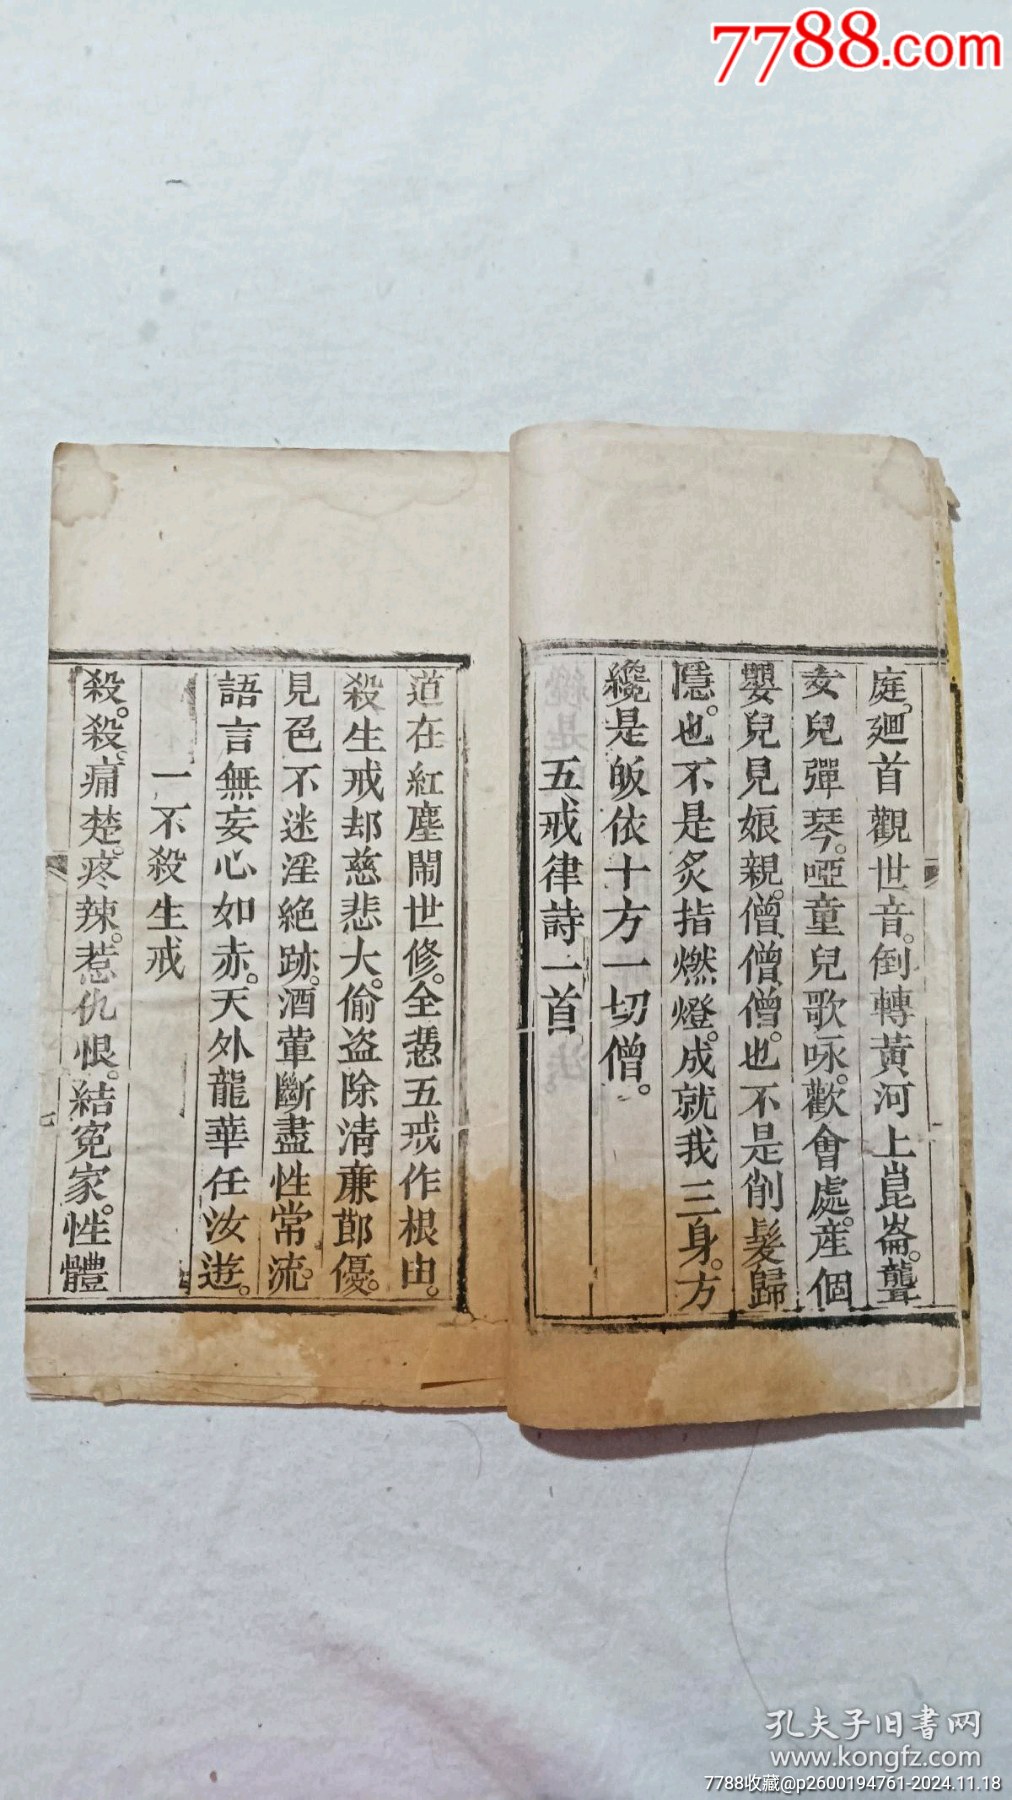 7788.com
庭。廻首觀世音。倒轉黃河上崑崙。聾
女兒彈琴。啞童兒歌咏。歡會處。産個
嬰兒見娘親。僧僧僧。也不是削髮歸
隱。也不是炙指燃燈。成就我三身。方
纔是皈依十方一切僧。
五戒律詩一首
道在紅塵鬧世修。全憑五戒作根由。
殺生戒却慈悲大。偷盗除清亷節優。
見色不迷淫絶跡。酒葷斷盡性常流。
語言無妄心如赤。天外龍華任汝遊。
一不殺生戒
殺。殺。痛楚。疼辣。惹仇恨。結寃家。性體
七
孔夫子旧書网
www.kongfz.com
7788收藏@p2600194761-2024.11.18